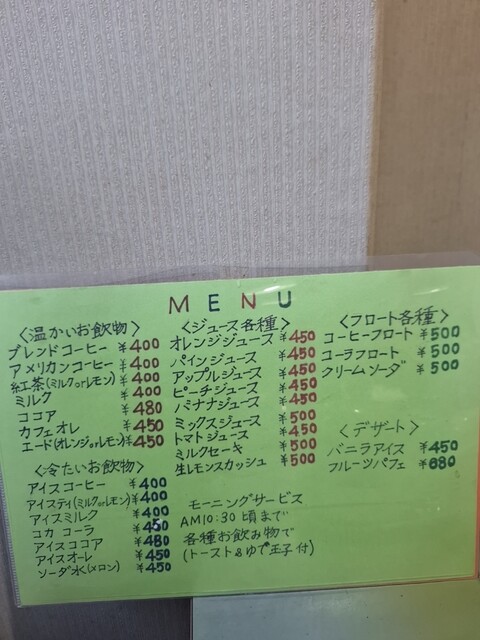 MENU
〈温かいお飲物〉
ブレンドコーヒー ¥400
アメリカンコーヒー ¥400
紅茶(ミルクorレモン) ¥400
ミルク ¥400
ココア ¥480
カフェオレ ¥450
エード(オレンジorレモン) ¥450
〈冷たいお飲物〉
アイスコーヒー ¥400
アイスティ(ミルクorレモン) ¥400
アイスミルク ¥400
コカコーラ ¥450
アイスココア ¥480
アイスオーレ ¥450
ソーダ水(メロン) ¥450
〈ジュース各種〉
オレンジジュース ¥450
パインジュース ¥450
アップルジュース ¥450
ピーチジュース ¥450
バナナジュース ¥450
ミックスジュース ¥500
トマトジュース ¥450
ミルクセーキ ¥500
生レモンスカッシュ ¥500
モーニングサービス
AM10:30頃まで
各種お飲み物で
(トースト&ゆで玉子付)
〈フロート各種〉
コーヒーフロート ¥500
コーラフロート ¥500
クリームソーダ ¥500
〈デザート〉
バニラアイス ¥450
フルーツパフェ ¥680